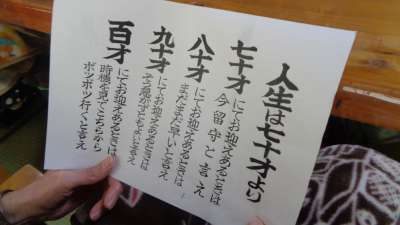 人生は七十才より
七十才にてお迎えあるときは
今留守と言え
八十才にてお迎えあるときは
まだまだ早いと言え
九十才にてお迎えあるときは
そう急がずともよいと言え
百才にてお迎えあるときは
時機を見てこちらから
ボツボツ行くと言え